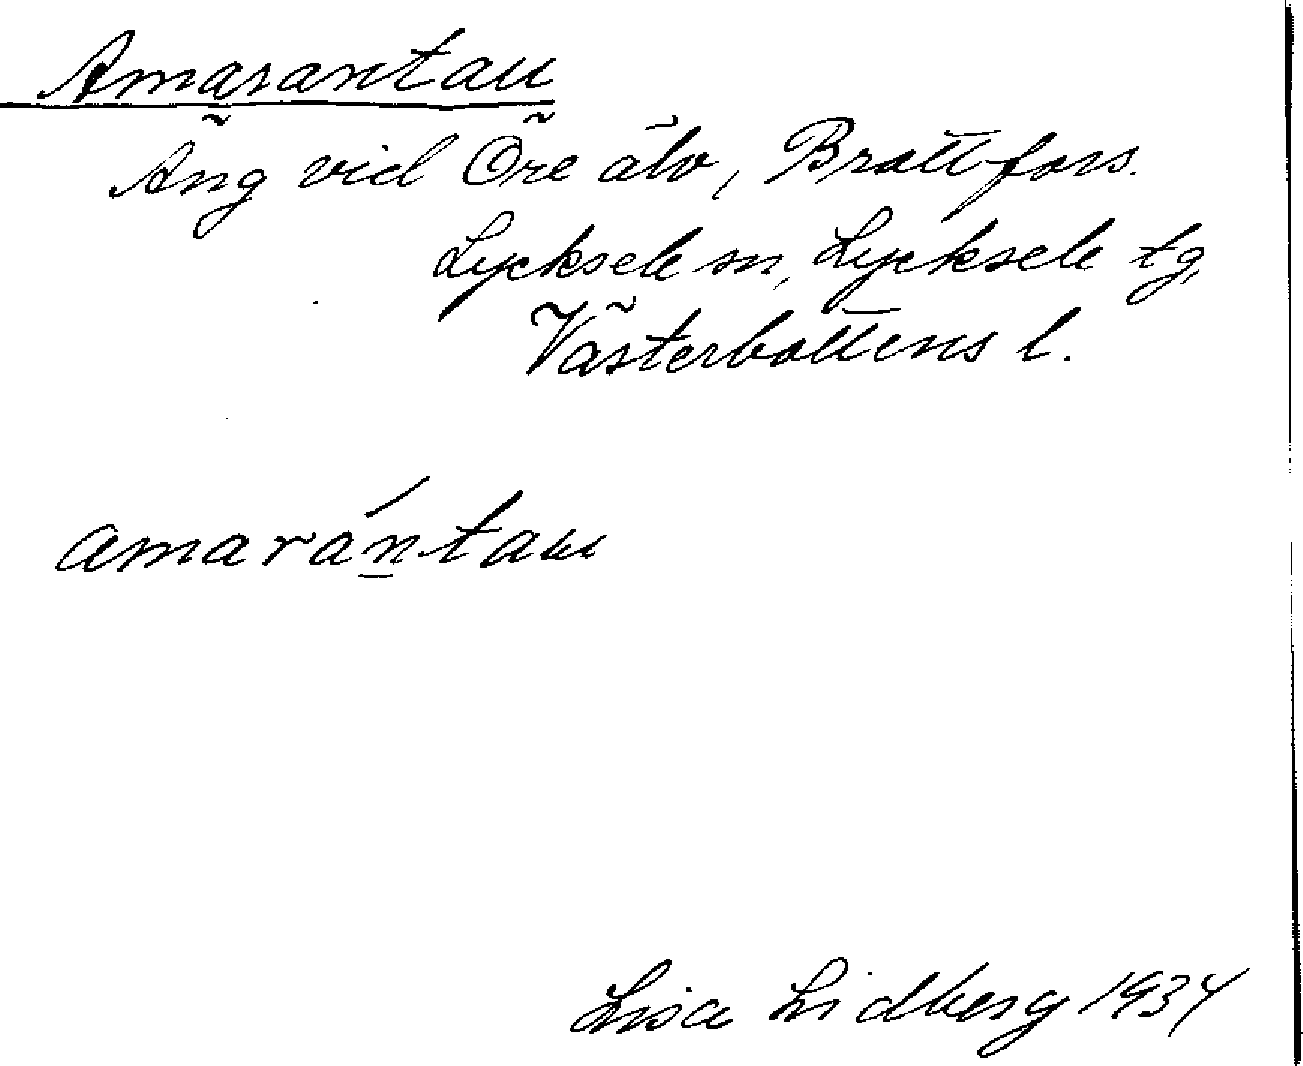 Amarantau
Äng vid Öre älv, Brattfors.
Lycksele sn, Lycksele tg,
Västerbottens l.
amarántau
Lisa Lidberg 1934